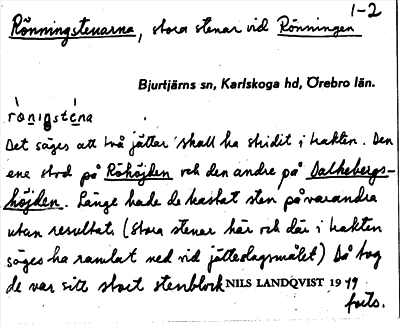 1-2
Rönningstenarna, stora stenar vid Rönningen
Bjurtjärns sn, Karlskoga hd, Örebro län.
rö̀niŋsténa
Det säges att två jättar skall ha stridit i trakten. Den
ene stod på Röhöjden och den andre på Dalkebergs-
höjden. Länge hade de kastat sten på varandra
utan resultat (stora stenar här och där i trakten
säges ha ramlat ned vid jätteslagsmålet) Då tog
de var sitt stort stenblock NILS LANDQVIST 1919
forts.